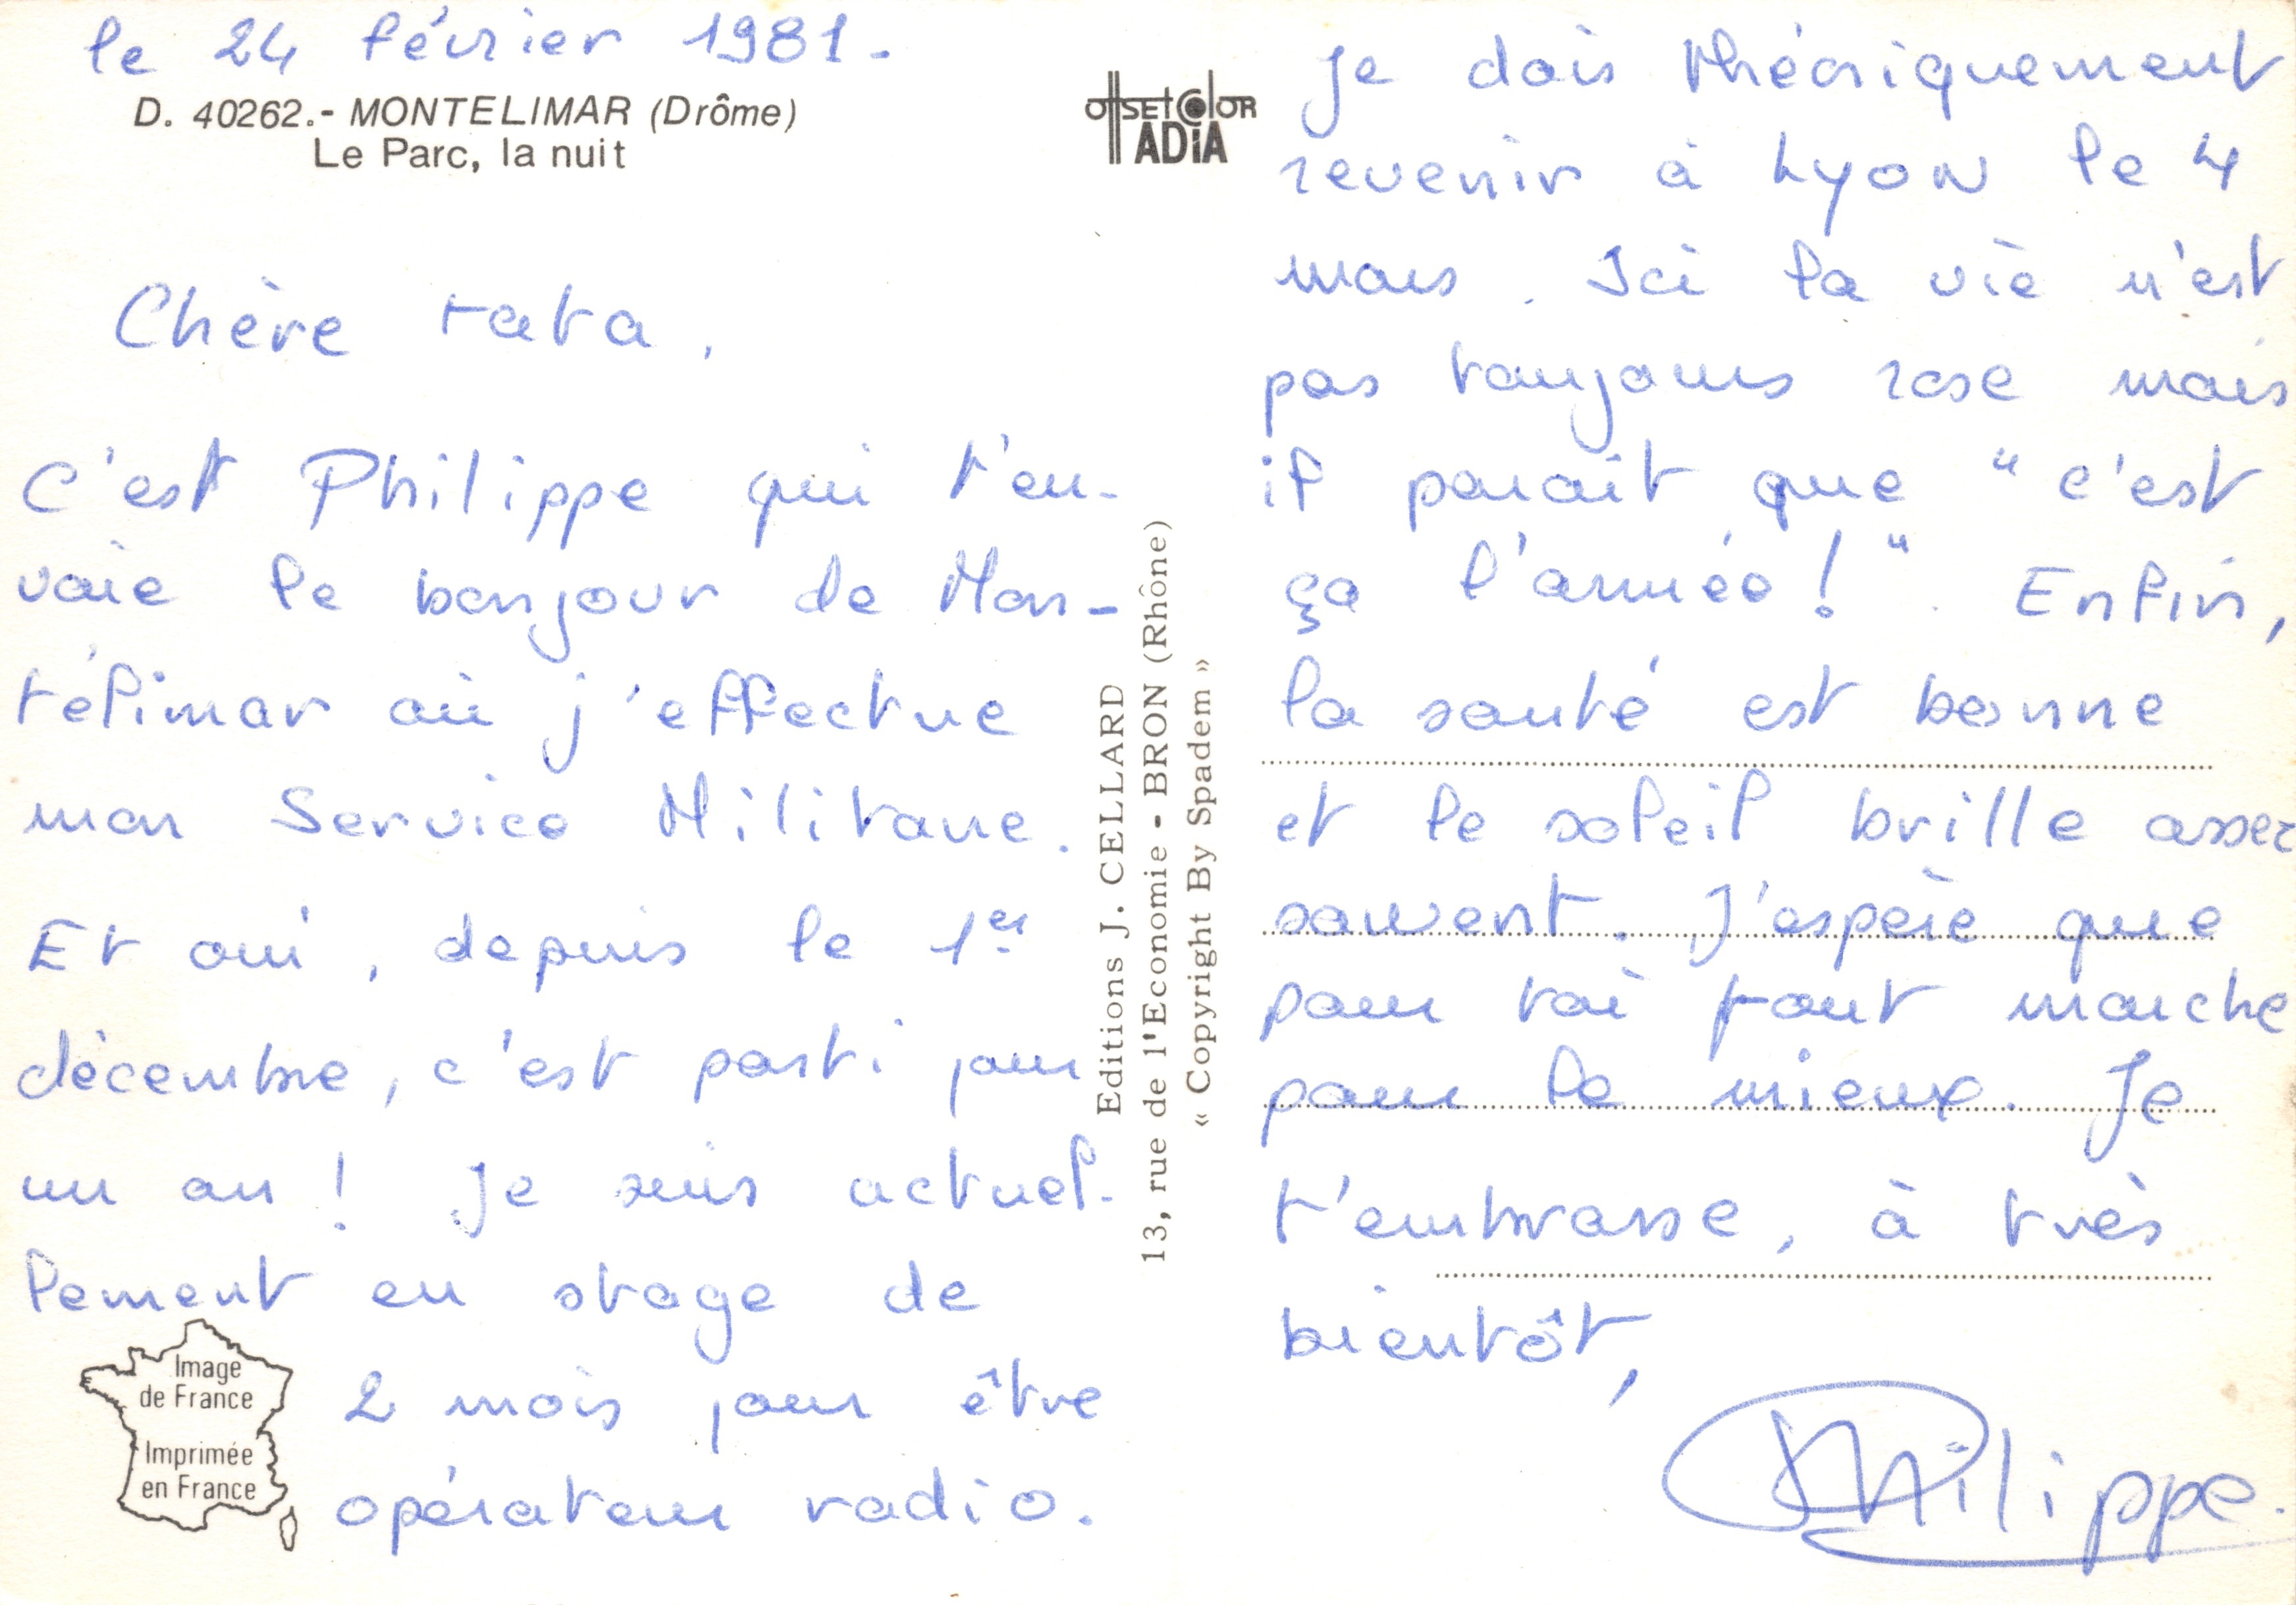 le 24 février 1981.
D. 40262.- MONTELIMAR (Drôme)
Le Parc, la nuit
Chère tata,
C'est Philippe qui t'en-
voie le bonjour de Mon-
télimar où j'effectue
mon Service Militaire.
Et oui, depuis le 1er
décembre, c'est parti pour
un an ! Je suis actuel-
lement en stage de
2 mois pour être
opérateur radio.
Image
de France
Imprimée
en France
OffsetColor
ADIA
Editions J. CELLARD
13, rue de l'Economie - BRON (Rhône)
« Copyright By Spadem »
Je dois théoriquement
revenir à Lyon le 4
mars. Ici la vie n'est
pas toujours rose mais
il paraît que "c'est
ça l'armée !". Enfin,
la santé est bonne
et le soleil brille assez
souvent. J'espère que
pour toi tout marche
pour le mieux. Je
t'embrasse, à très
bientôt,
Philippe.